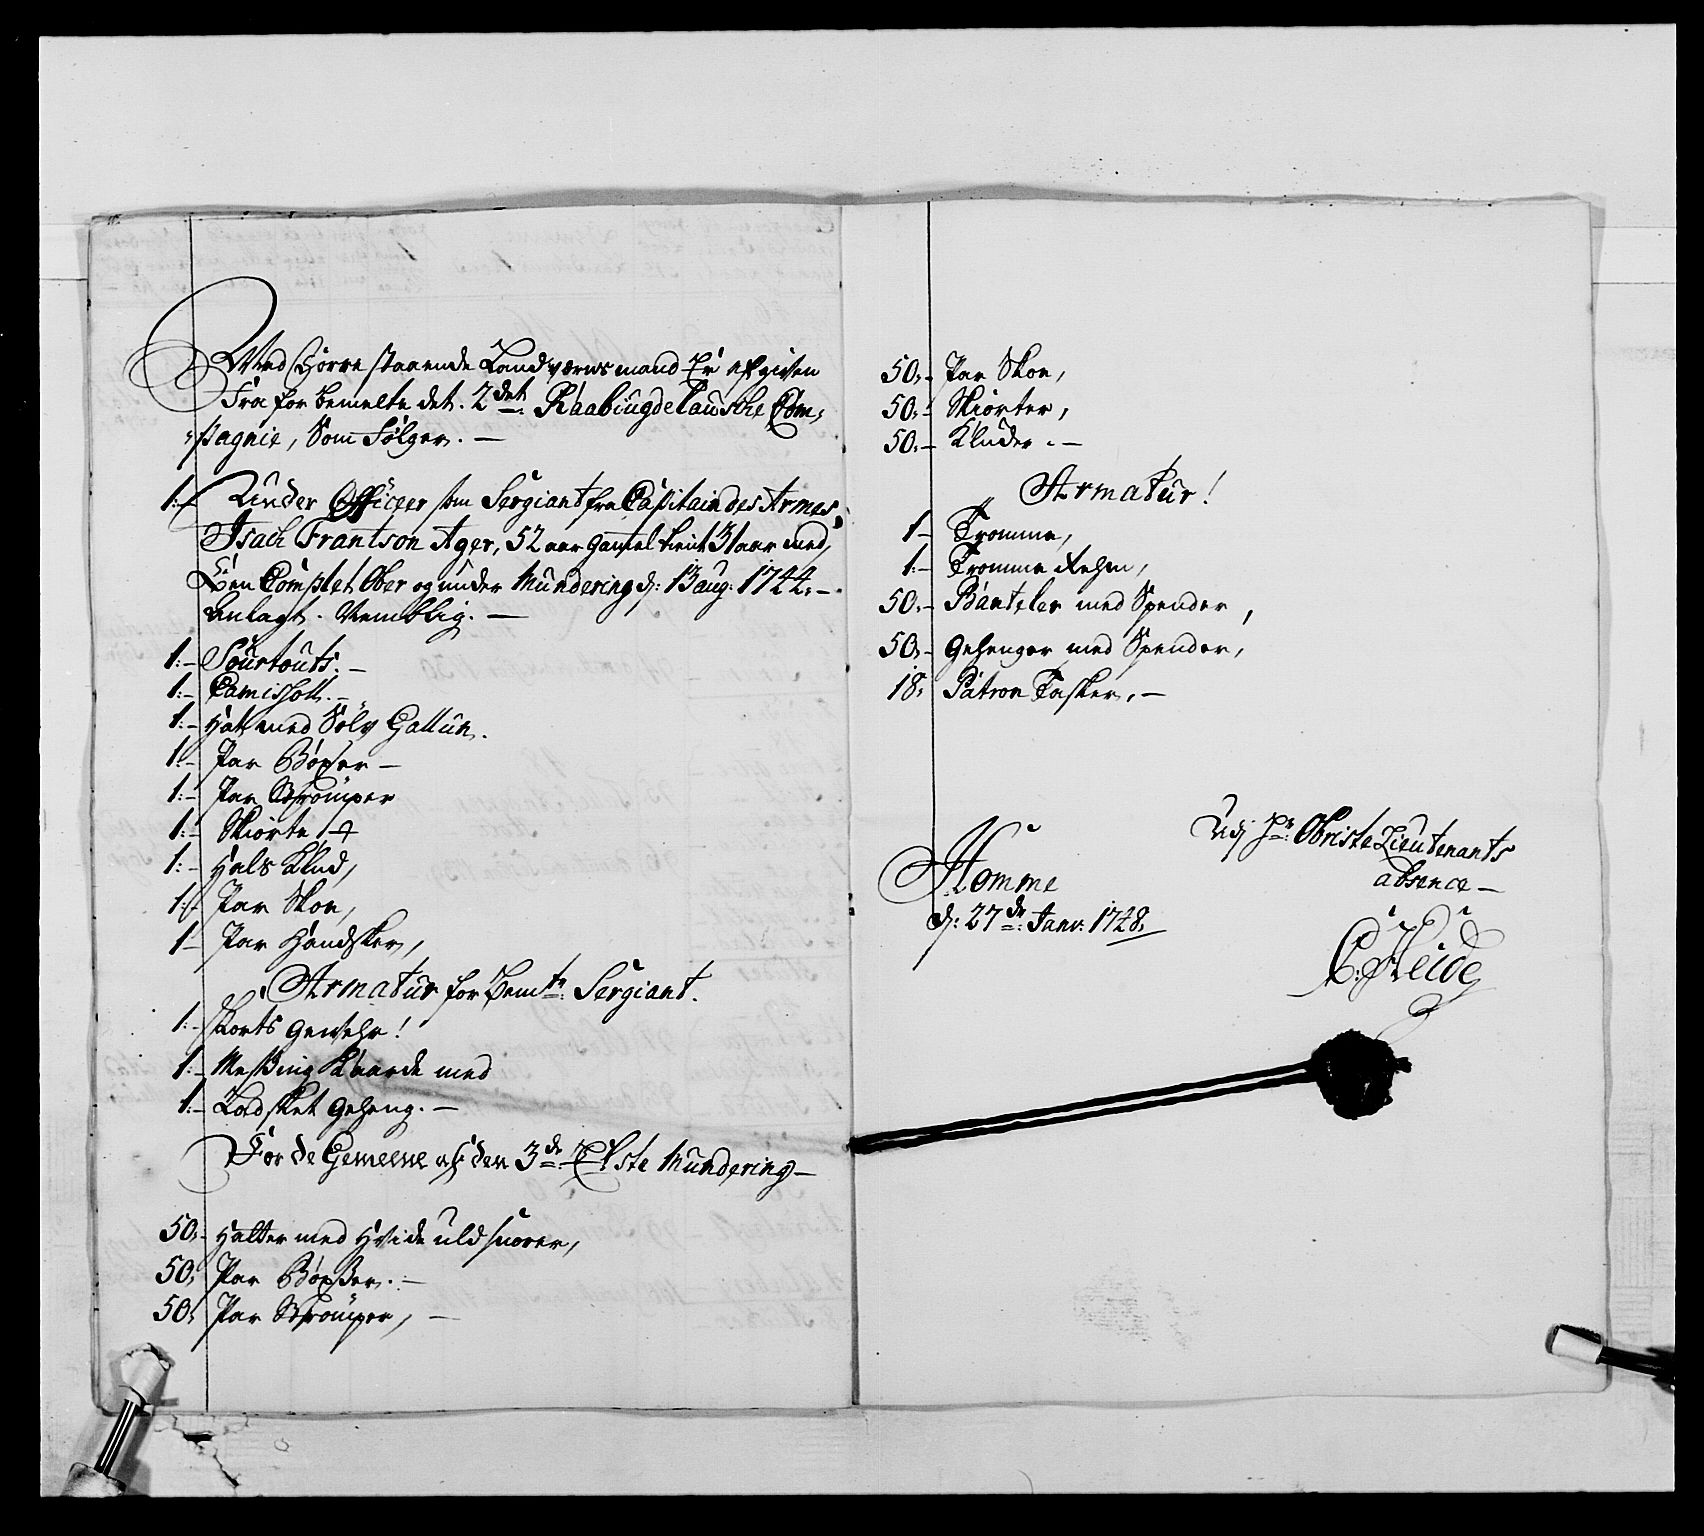 Med Hörre staaende Landværns mand Er afgiven
Fra for bemelte det. 2det Raabÿugdelausche Com,
,pagnie, Som Følger. —
1:— Under Officeer som Sergiant fra Capitain des Armes
Isach Frantson Ager, 52 aar gamel tient 31 aar med,
Een Complet Ober og under Mundering d: 13 aug: 1744. —
anlagt. Nemblig. —
1:— Sourtouts. —
1:— Camisholl. —
1:— Hat med Sölv Gallun.
1:— Par Böxser —
1:— Par Strömper
1:— Skiorte
1:— Hals Klud,
1:— Par Skoe,
1— Par Handsker,
Armatur for bemte Sergiant.
1:— korts gewehr!
1:— Messing Kaarde med
1:— Lædsket geheng. —
For de Gemeene af den 3de Elste Mundering —
50:— Hatter med Hvide uld snorer,
50, Par Böxser. —
50, Par Strömper, —
50,— Par Skoe,
50:— Skiorter,
50,— Kluder. —
Armatur!
1— Tromme,
1:— Tromme Rehm,
50,— Banteler med Spender,
50,— gehenger med Spender,
18, Patron Tasker, —
Udj Hr: Obriste Lieutenants
absence —
Homme
d: 27de Janv: 1748.
C: Heide